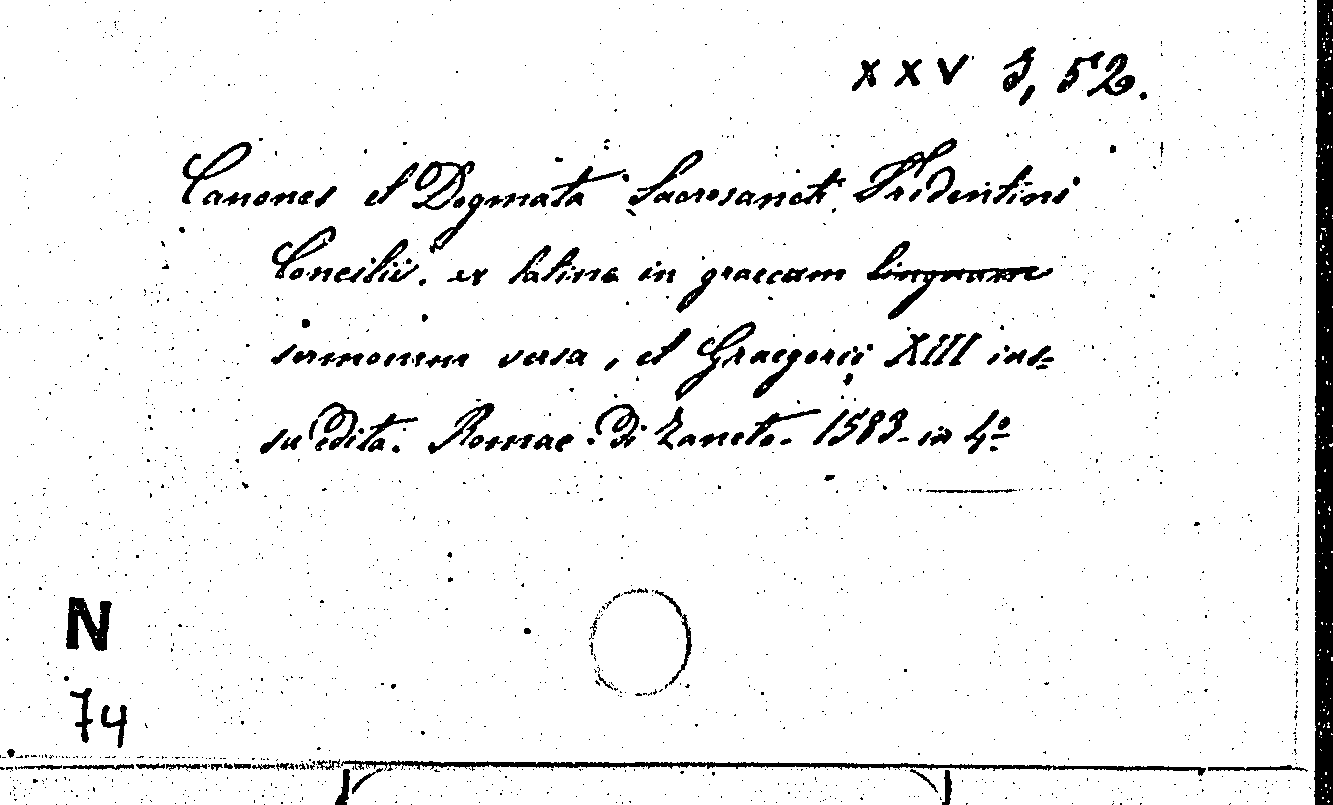 XXV J, 52.
Canones et Dogmata Sacrosancti Tridentini
Concilii. ex latino in graecum linguam
sermonem versa, et Graegorii XIII ius-
su edita. Romae. Di Zaneto. 1583. in 4º
N
74